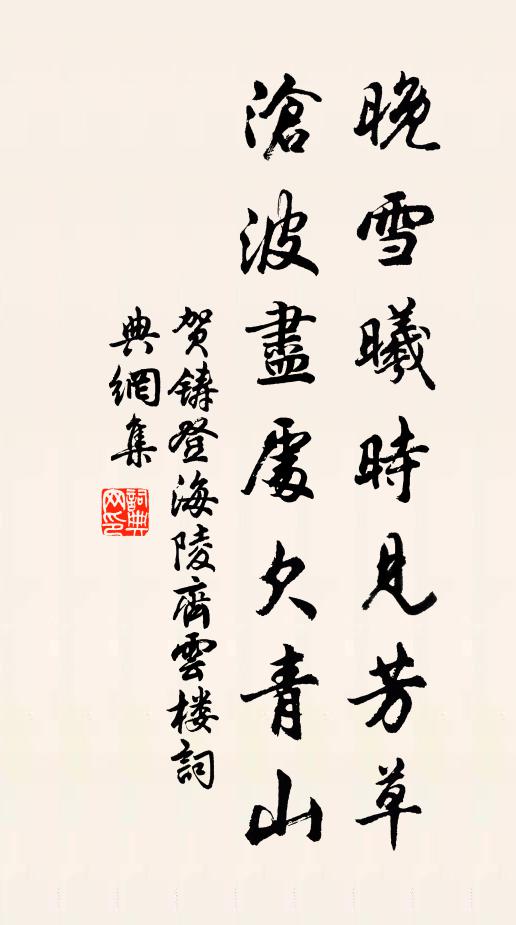 晚雪曦時見芳草
滄波盡處欠青山
贺鑄登海陵齊雲楼詞
典網集
詞典
网印